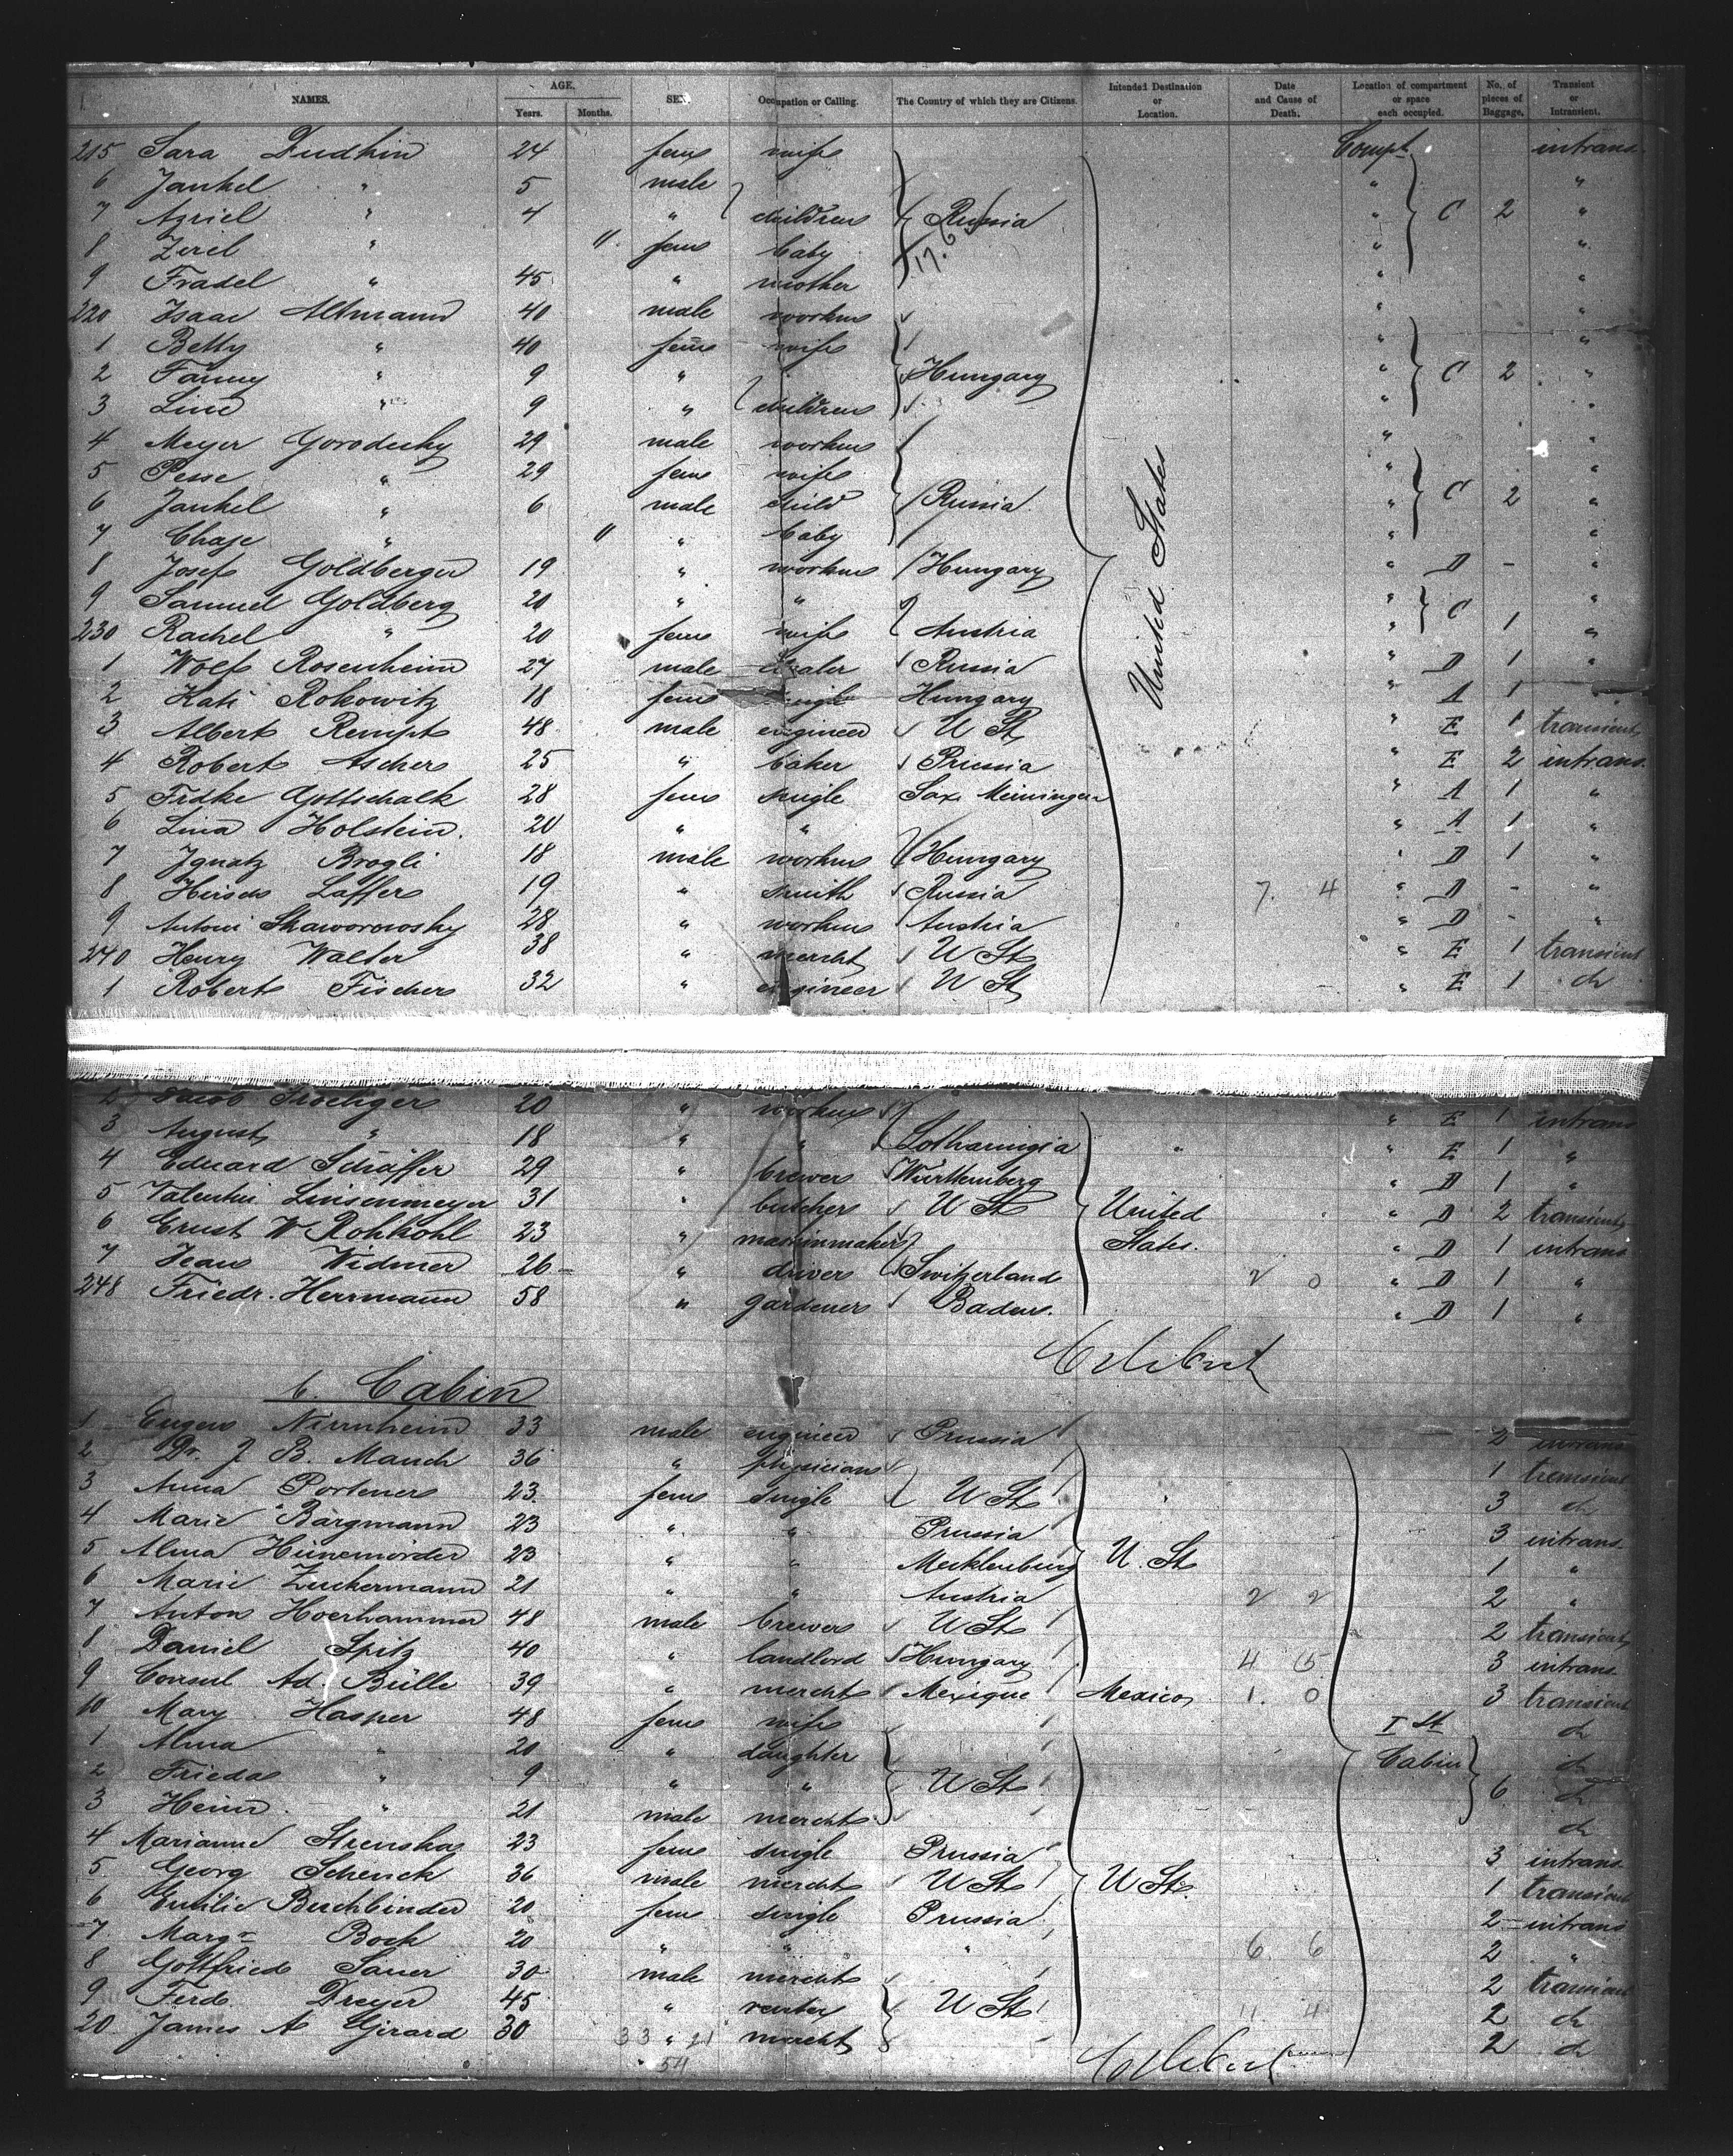 NAMES. AGE. Years. Months. SEX. Occupation or Calling. The Country of which they are Citizens. Intended Destination or Location. Date and Cause of Death. Location of compartment or space each occupied. No. of pieces of Baggage. Transient or Intransient.
215 Sara Dudkin 24 fem wife Compt intrans.
6 Jankel " 5 male " "
7 Azriel " 4 " children Russia " C 2 "
8 Zirel " 11 fem baby 17.6 " "
9 Fradel " 45 " mother " "
220 Isaac Altmann 40 male workm " "
1 Betty " 40 fem wife " "
2 Fanny " 9 " Hungary " C 2 "
3 Line " 9 " children " "
4 Meyer Gorodecky 29 male workm " "
5 Pesse " 29 fem wife " "
6 Jankel " 6 male child Russia " C 2 "
7 Chaje " 11 " baby " "
8 Josef Goldberger 19 " workm Hungary United States " D - "
9 Samuel Goldberg 20 " " " "
230 Rachel " 20 fem wife Austria " C 1 "
1 Wolf Rosenheim 27 male dealer Russia " D 1 "
2 Kati Rokowitz 18 fem single Hungary " A 1 "
3 Albert Rempt 48 male engineer U St " E 1 transient
4 Robert Ascher 25 " baker Prussia " E 2 intrans.
5 Fridke Gottschalk 28 fem single Sax. Meiningen " A 1 "
6 Lina Holstein. 20 " " " A 1 "
7 Ignatz Brogli 18 male workm Hungary " D 1 "
8 Hirsch Laffer 19 " smith Russia 7. 4 " D - "
9 Antoni Skaworowsky 28 " workm Austria " D - "
240 Henry Walter 38 " mercht U St " E 1 transient
1 Robert Fischer 32 " engineer U St " E 1 do
2 Jacob 20 " workm " E 1 intrans
3 August " 18 " " Lotharingia " " E 1 "
4 Eduard Schäffer 29 " brewer Württemberg " D 1 "
5 Valentin Linsenmeyer 31 " butcher U St United " D 2 transient
6 Ernst W Rohkohl 23 " maschinmaker States. " D 1 intrans
7 Jean Widmer 26 " driver Switzerland 2 0 " D 1 "
248 Friedr. Herrmann 58 " gardener Baden. " D 1 "
b. Cabin
1 Eugen Nirrnheim 33 male engineer Prussia 2 intrans
2 Dr. J B. Mauch 36 " physician 1 transient
3 Anna Portener 23. fem single U St 3 do
4 Marie Bargmann 23 " " Prussia 3 intrans.
5 Alma Hünemörder 23 " " Mecklenburg U. St 1 "
6 Marie Zuckermann 21 " " Austria 2 2 2 "
7 Anton Hoerhammer 48 male brewer U St 2 transient
8 Daniel Spitz 40 " landlord Hungary 4 5 3 intrans.
9 Consul Ad. Bülle 39 " mercht Mexique Mexico, 1. 0 3 transient
10 Mary Hasper 48 fem wife I St do
1 Alma " 20 " daughter Cabin do
2 Frieda " 9 " " U St 6 do
3 Heinr. " 21 male mercht do
4 Marianne Strenska 23 fem single Prussia 3 intrans.
5 Georg Schenck 36 male mercht U St U St. 1 transient
6 Emilie Buchbinder 20 fem single Prussia 2 intrans
7 Margr Bock 20 " " " 6. 6 2 "
8 Gottfried Sauer 30 male mercht 2 transient
9 Ferd. Dreyer 45 " rentier U St 11. 4 2 do
20 James A Girard 30 33 " 21 mercht 2 do
54